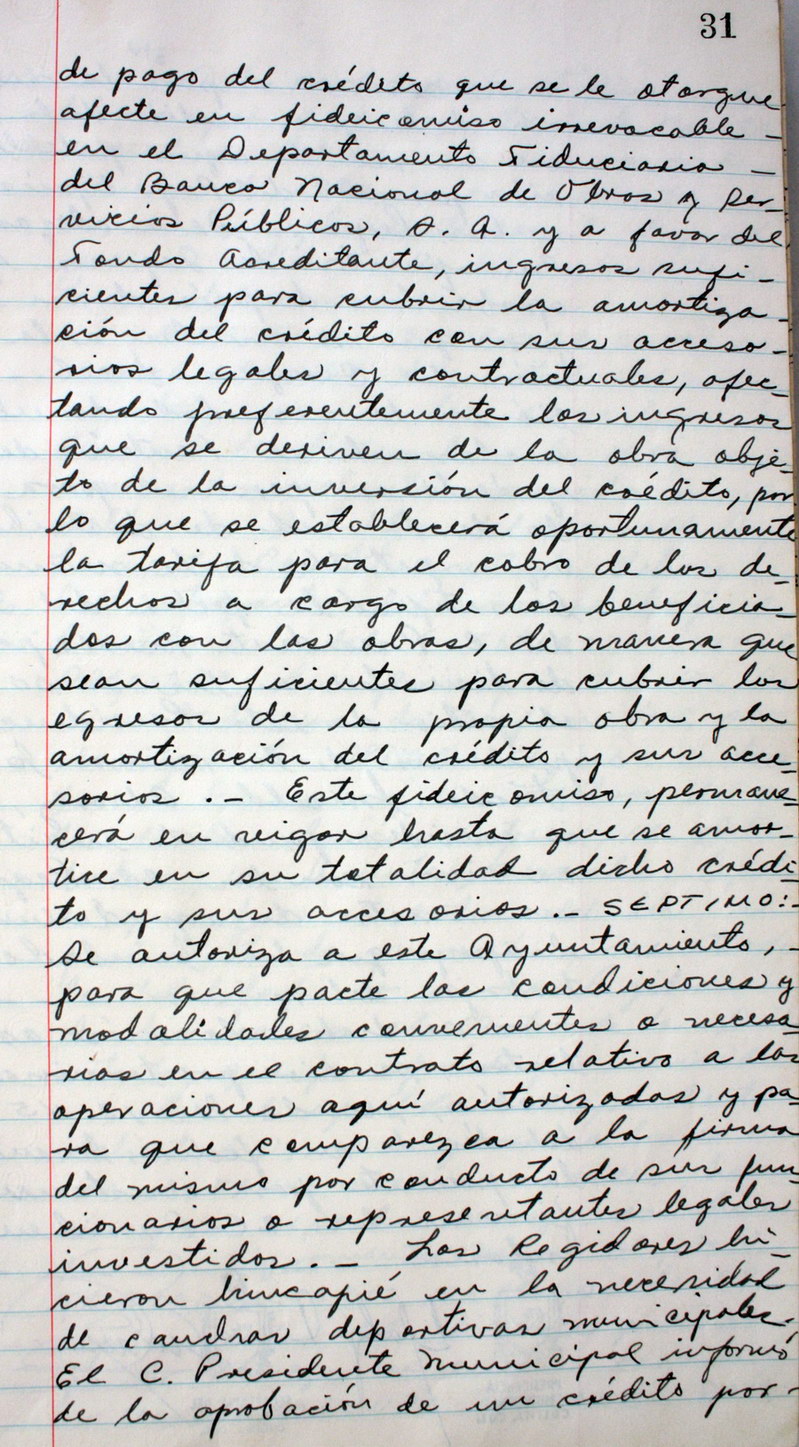 31
de pago del crédito que se le otorgue
afecte en fideicomiso irrevocable -
en el Departamento Fiduciario -
del Banco Nacional de Obras y Ser-
vicios Públicos, S. A. y a favor del
Fondo Acreditante, ingresos sufi-
cientes para cubrir la amortiza-
ción del crédito con sus acceso-
rios legales y contractuales, afec-
tando preferentemente los ingresos
que se deriven de la obra obje-
to de la inversión del crédito, por
lo que se establecerá oportunamente
la tarifa para el cobro de los de-
rechos a cargo de los beneficia-
dos con las obras, de manera que
sean suficientes para cubrir los
egresos de la propia obra y la
amortización del crédito y sus acce-
sorios .- Este fideicomiso, permane-
cerá en vigor hasta que se amor-
tice en su totalidad dicho crédi-
to y sus accesorios .- SEPTIMO:-
Se autoriza a este Ayuntamiento, -
para que pacte las condiciones y
modalidades convenientes o necesa-
rias en el contrato relativo a las
operaciones aquí autorizadas y pa-
ra que comparezca a la firma
del mismo por conducto de sus fun-
cionarios o representantes legales
investidos .- Los Regidores hi-
cieron hincapié en la necesidad
de canchas deportivas municipales.
El C. Presidente Municipal informó
de la aprobación de un crédito por -